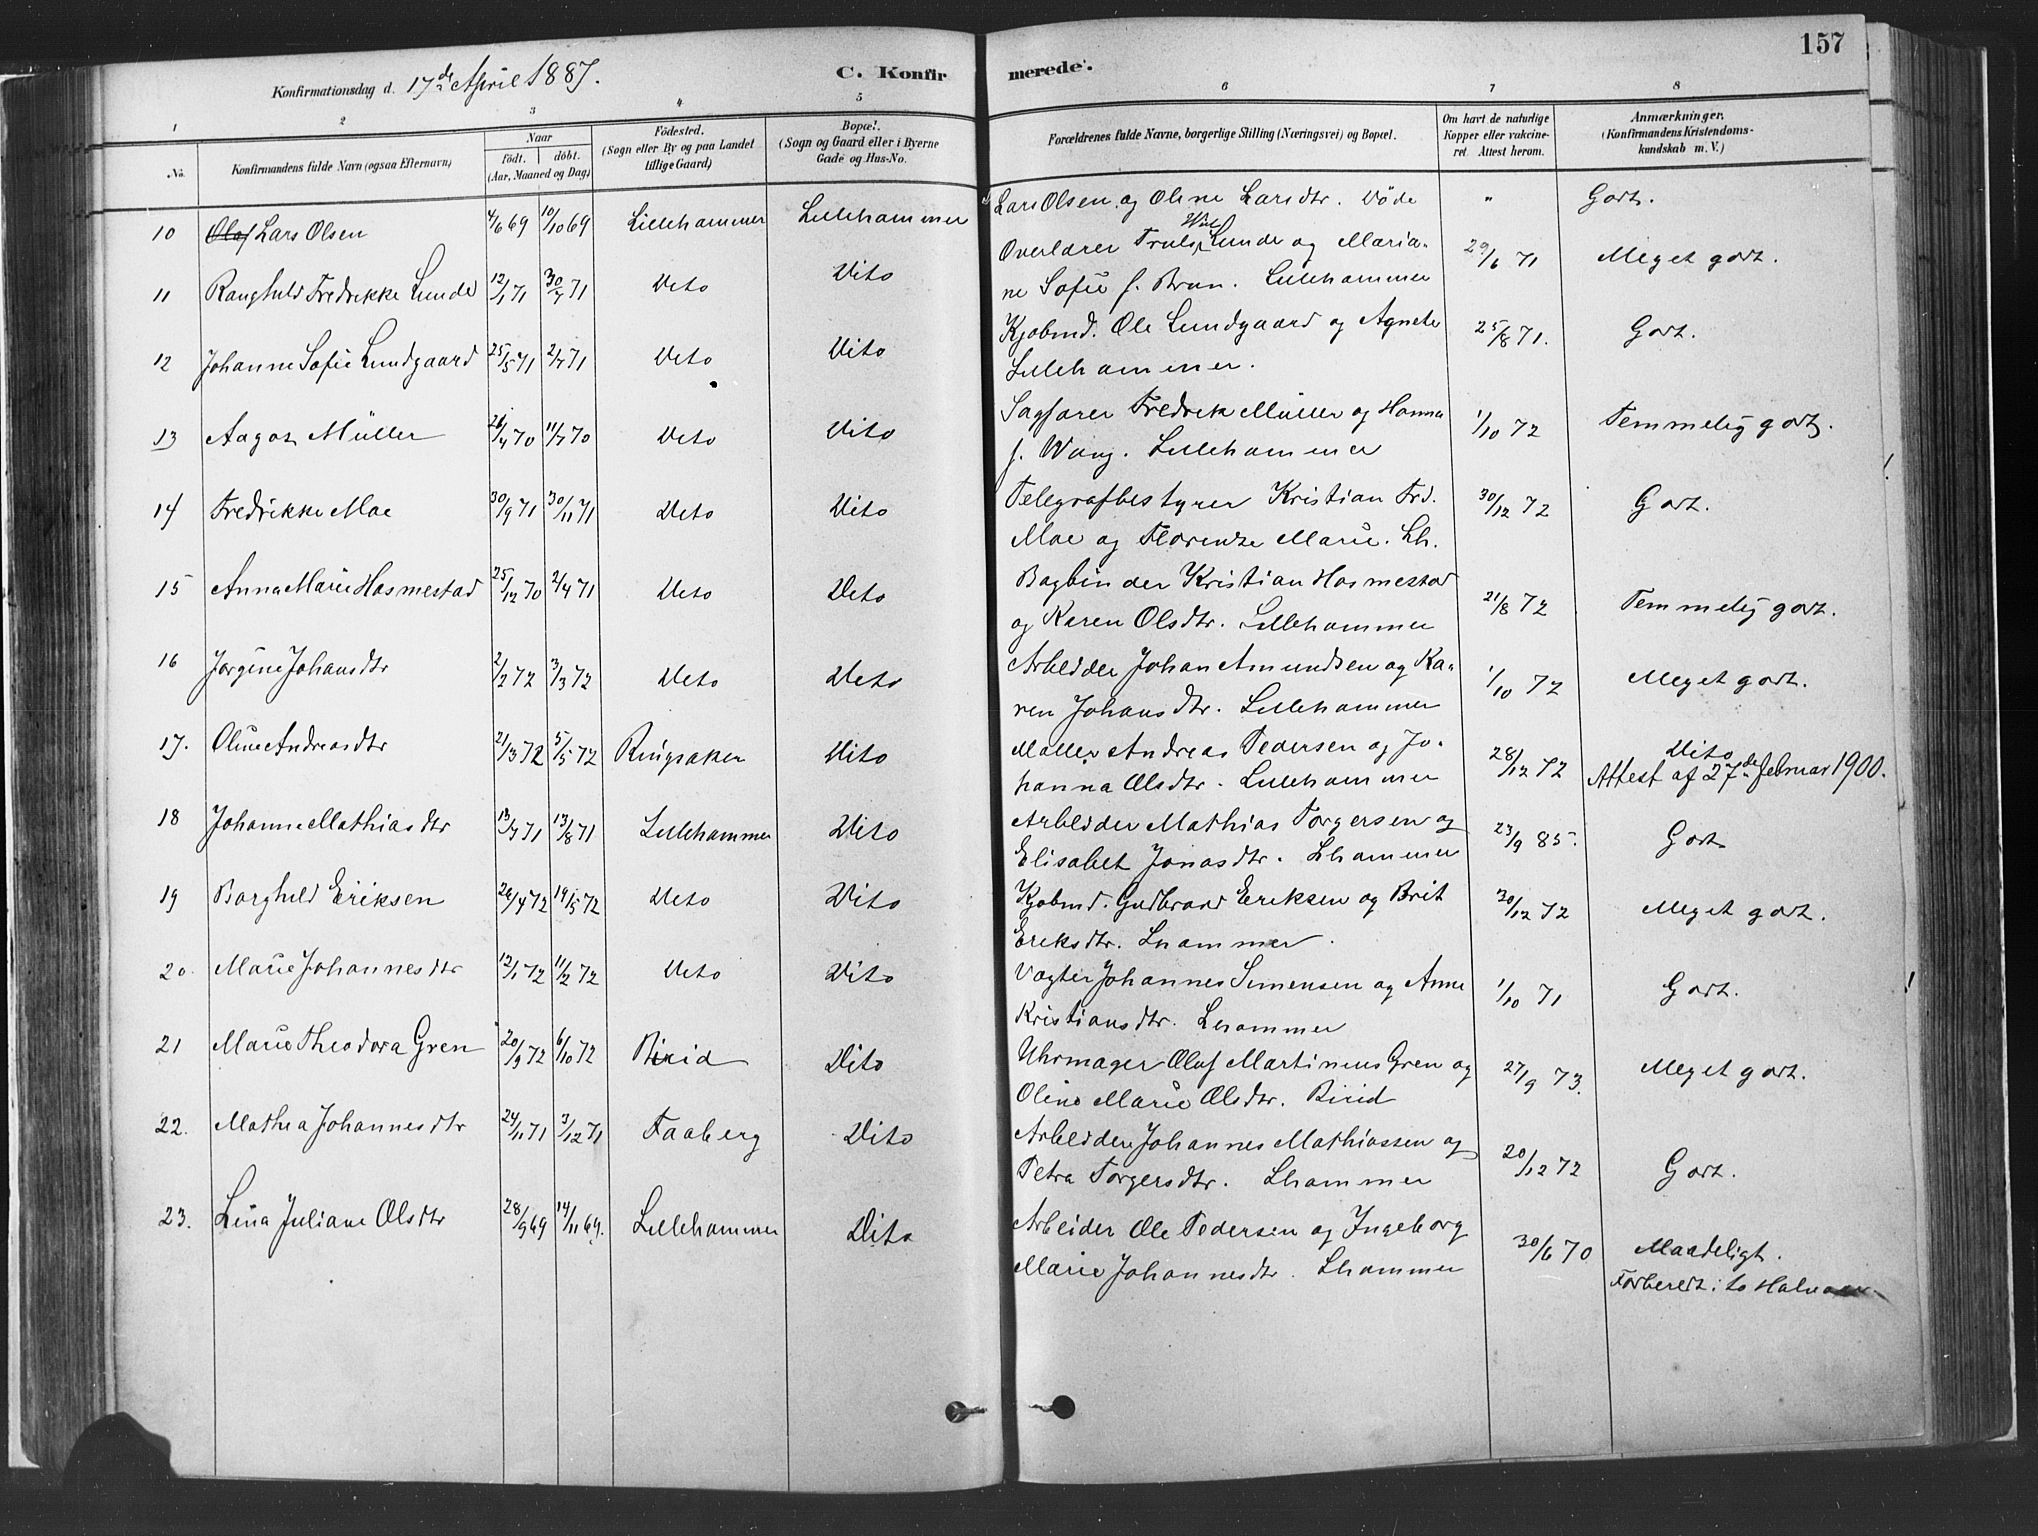 157
Konfirmationsdag d. 17de April 1887.
C. Konfirmerede.
1 2 3 4 5 6 7 8
No.
Konfirmandens fulde Navn (ogsaa Efternavn)
Naar
födt. döbt.
(Aar, Maaned og Dag)
Födested.
(Sogn eller By og paa Landet
tillige Gaard)
Bopæl.
(Sogn og Gaard eller i Byerne
Gade og Hus-No.
Forældrenes fulde Navne, borgerlige Stilling (Næringsvei) og Bopæl.
Om havt de naturlige
Kopper eller vakcine-
ret. Attest herom.
Anmærkninger.
(Konfirmandens Kristendoms-
kundskab m. V.)
10 Olaf Lars Olsen 4/6 69 10/10 69 Lillehammer Lillehammer
Lars Olsen og Oline Larsdtr. Døde " Godt.
11 Ranghild Fredrikke Lunde 12/1 71 30/7 71 Dito Dito
Overlærer Truls Lunde og Maria-
ne Sofie f. Brun. Lillehammer 29/6 71 Meget godt.
12 Johanne Sofie Lundgaard 25/5 71 2/7 71 Dito Dito
Kjøbmd. Ole Lundgaard og Agnete
Lillehammer. 25/8 71. Godt.
13 Aagot Müller 26/4 70 11/7 70 Dito Dito
Sagfører Fredrik Müller og Hanna
f. Wang. Lillehammer 1/10 72 Temmelig godt.
14 Fredrikke Moe 30/9 71 30/11 71 Dito Dito
Telegrafbestyrer Kristian Frd.
Moe og Florentze Marie. Lh. 30/12 72 Godt.
15 Anna Marie Hasmestad 25/12 70 2/4 71 Dito Dito
Bogbinder Kristian Hasmestad
og Karen Olsdtr. Lillehammer 21/8 72 Temmelig godt.
16 Jørgine Johansdtr 2/2 72 3/3 72 Dito Dito
Arbeider Johan Amundsen og Ka-
ren Johansdtr. Lillehammer 1/10 72 Meget godt.
17. Oline Andreasdtr 21/3 72 5/5 72 Ringsaker Dito
Møller Andreas Pedersen og Jo-
hanna Olsdtr. Lillehammer 28/12 72 Dito
Attest af 27de februar 1900.
18 Johanne Mathiasdtr 13/7 71 13/8 71 Lillehammer Dito
Arbeider Mathias Torgersen og
Elisabet Jonasdtr. Lhammer 23/9 85. Godt
19 Borghild Eriksen 26/4 72 19/5 72 Dito Dito
Kjøbmd. Gudbrand Eriksen og Brit
Eriksdtr. Lhammer. 30/12 72 Meget godt.
20 Marie Johannesdtr 12/1 72 11/2 72 Dito Dito
Vægter Johannes Simensen og Anne
Kristiansdtr. Lhammer 1/10 71 Godt.
21 Marie Theodora Gren 20/9 72 6/10 72 Birid Dito
Uhrmager Oluf Martinius Gren og
Oline Marie Olsdtr. Birid 27/9 73. Meget godt.
22. Mathea Johannesdtr 24/11 71 3/12 71 Faaberg Dito
Arbeider Johannes Mathiassen og
Petra Torgersdtr. Lhammer 20/12 72 Godt.
23. Lina Juliane Olsdtr 28/9 69 14/11 69. Lillehammer Dito
Arbeider Ole Pedersen og Ingeborg
Marie Johannesdtr. Lhammer 30/6 70 Maadeligt.
Forberedt i to Halvaar